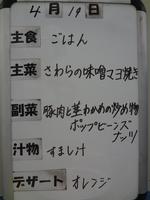 4月19日
主食 ごはん
主菜 さわらの味噌マヨ焼き
副菜 豚肉と茎わかめの炒め物
ポップビーンズ
ナッツ
汁物 すまし汁
デザート オレンジ